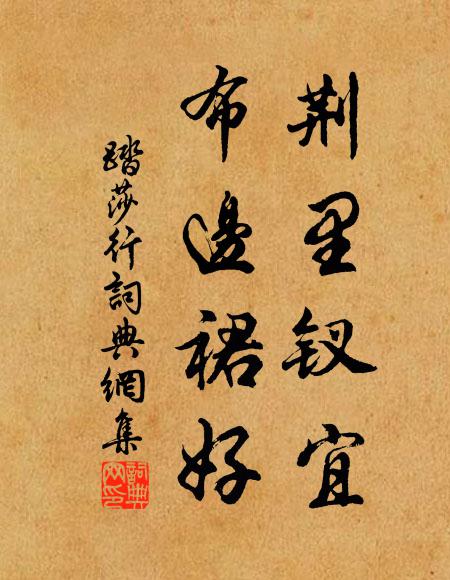 荆里钗宜
布邊裙好
踏莎行詞典網集
詞典網印